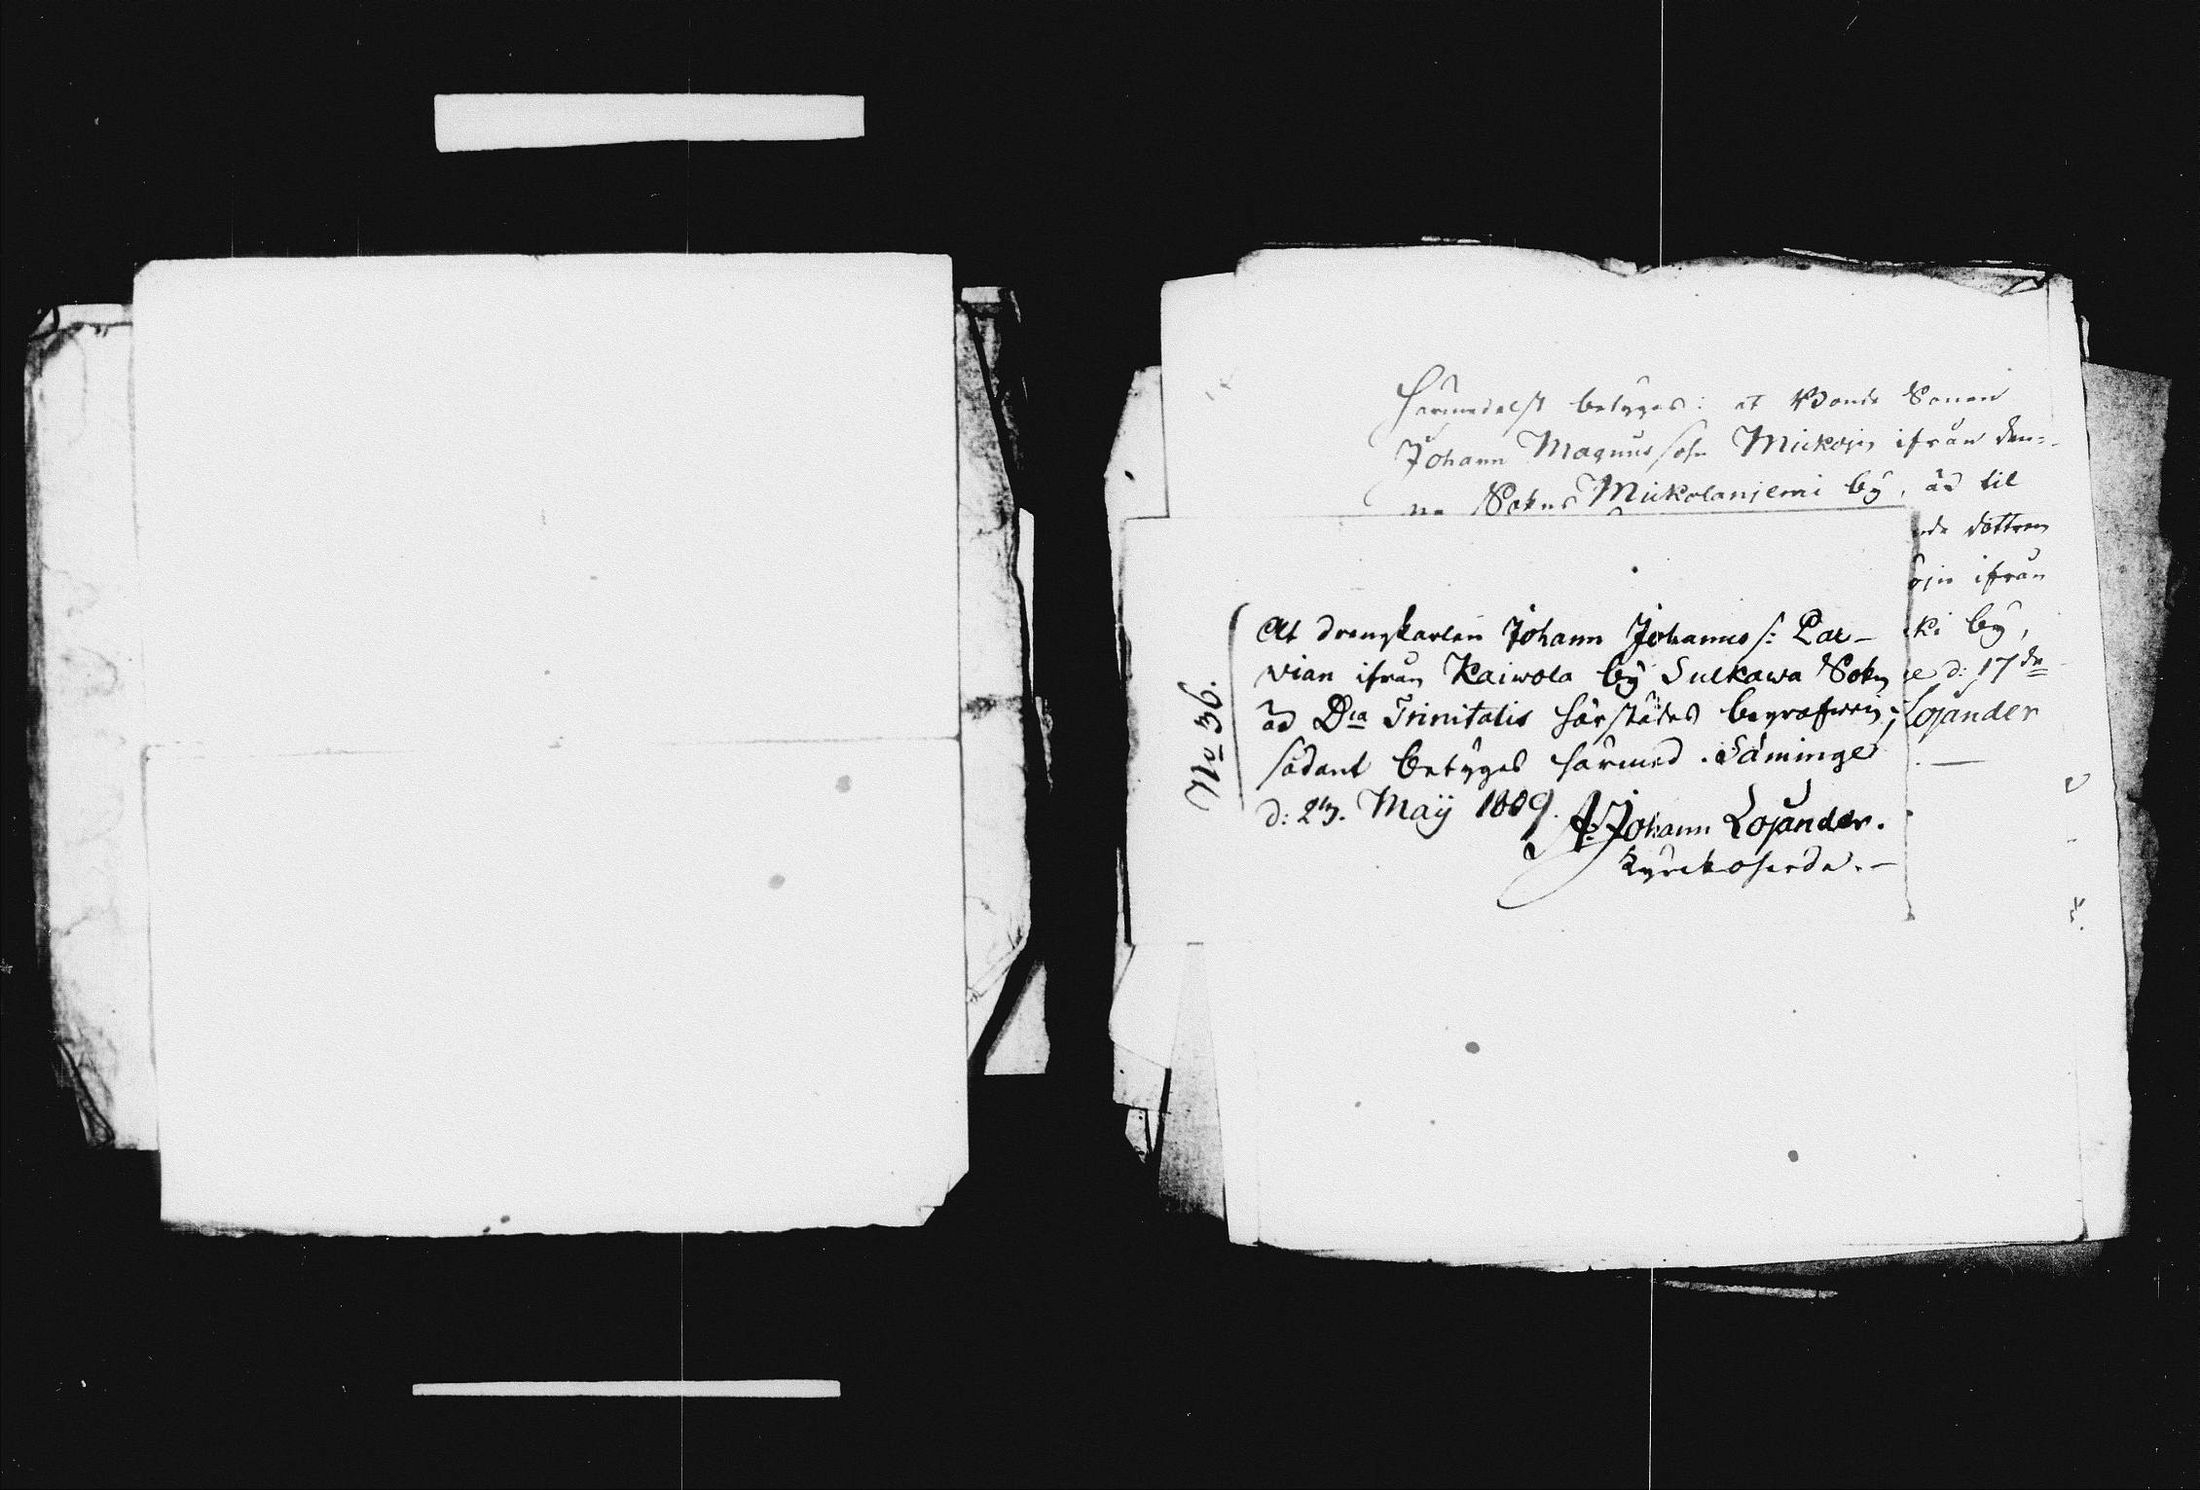 Härmedelst betyges: at Bonde Sonen
Johann Magnusson Mickojn ifrån den=
na Sokns Mickolaniemi by, är til
nde dottren
ojn ifrån
ki by,
e d: 17de
Lojander
No 36.
At drengkarlen Johann Johanns s: Par-
vian ifrån Kaiwola by Sulkawa Sokn
är Dca Trinitatis härstädes begrafwen;
sådant betyges härmed. Säminge
d: 29. Maij 1809. Johann Lojander.
Kyrckoherde. —